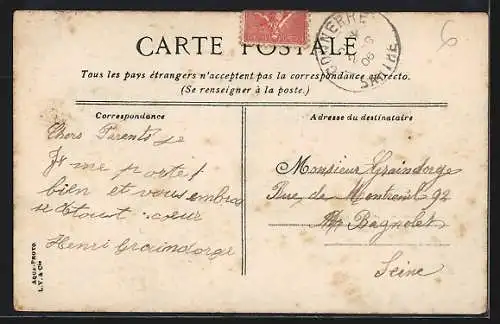 CARTE POSTALE
Tous les pays étrangers n'acceptent pas la correspondance au recto.
(Se renseigner à la poste.)
Correspondance
Adresse du destinataire
Chers Parents je
me porte
bien et vous embras
se tout cœur
Henri Graindorge
Monsieur Graindorge
Rue de Montreuil 92
Bagnolet
Seine
AQUA-PHOTO
L.V. & Cie
CONNERRÉ
SARTHE
6